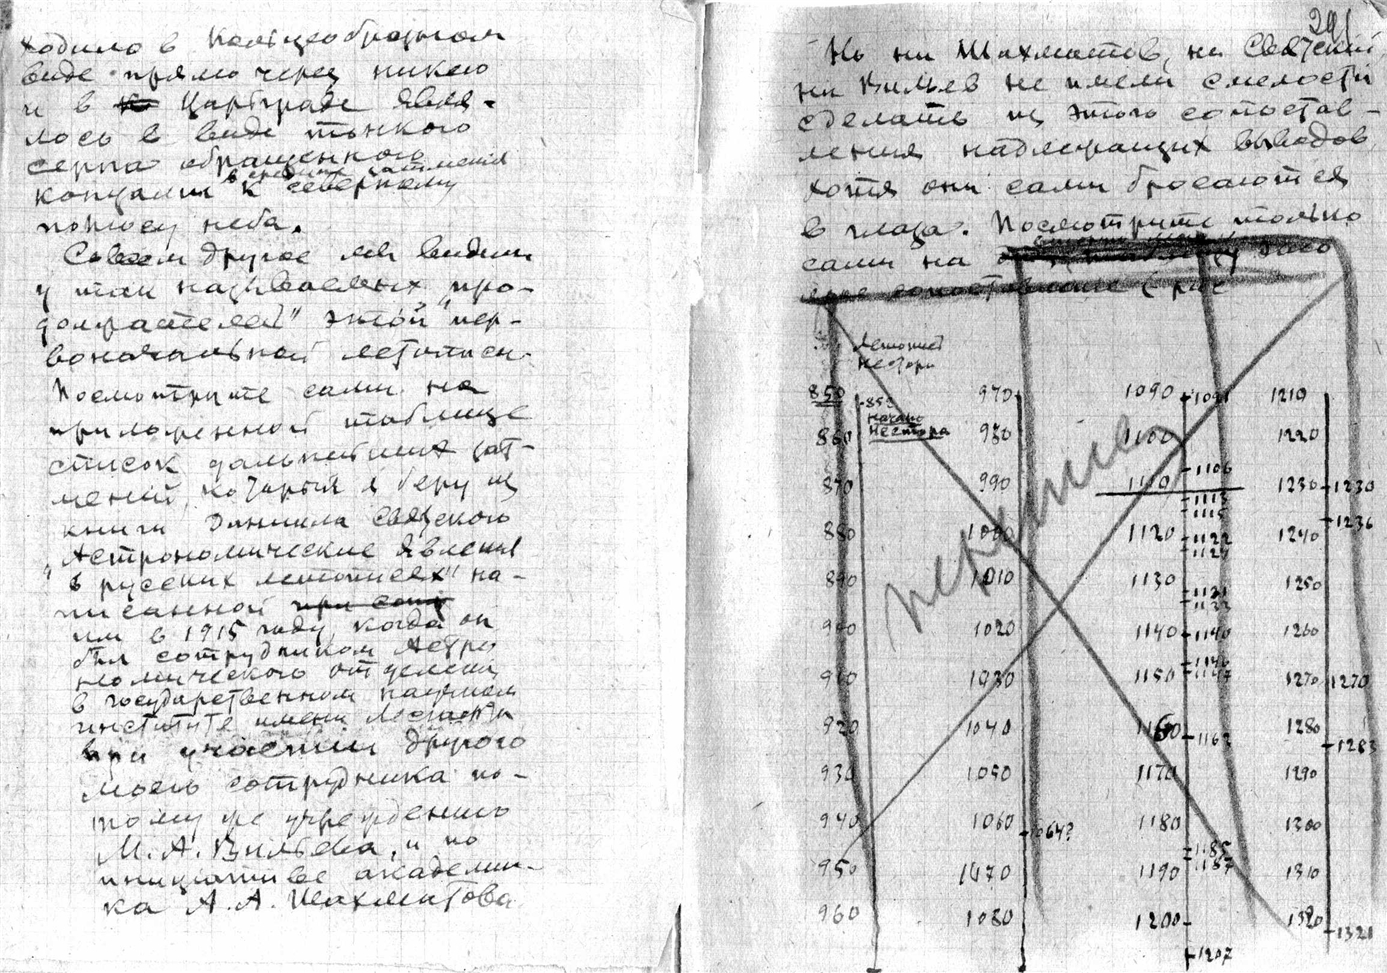 ходило в кольцеобразном
виде прямо через Никею
и в Царьграде явля-
лось в виде тонкого
серпа обращенного
в средине затмения
концами к северному
полюсу неба.
Совсем другое мы видим
у так называемых "про-
должателей" этой "пер-
воначальной летописи.
Посмотрите сами на
приложенной таблице
список дальнейших зат-
мений, который я беру из
книги Даниила Святского
"Астрономические явления
в русских летописях" на-
писанной
им в 1915 году, когда он
был сотрудником Астро
номического отделения
в государственном научном
институте имени Лесгафта
при участии другого
моего сотрудника по-
тому же учреждению
М. А. Вильева, и по
инициативе академи-
ка А. А. Шахматова
291
Но ни Шахматов, ни Святский,
ни Вильев не имели смелости
сделать из этого сопостав-
ления надлежащих выводов,
хотя они сами бросаются
в глаза. Посмотрите только
сами на
Летопись
Нестора
850 970 1090 1091 1210
852
начало
Нестора
860 980 1100 1220
1106
870 990 1110 1230 1230
1113
1115
1236
880 1000 1120 1122 1240
1124
890 1010 1130 1131 1250
1133
900 1020 1140 1140 1260
1146
1147
910 1030 1150 1270 1270
920 1040 1160 1162 1280
1283
930 1050 1170 1290
940 1060 1180 1300
1064?
1185
1187
950 1070 1190 1310
960 1080 1200 1320
1321
1207